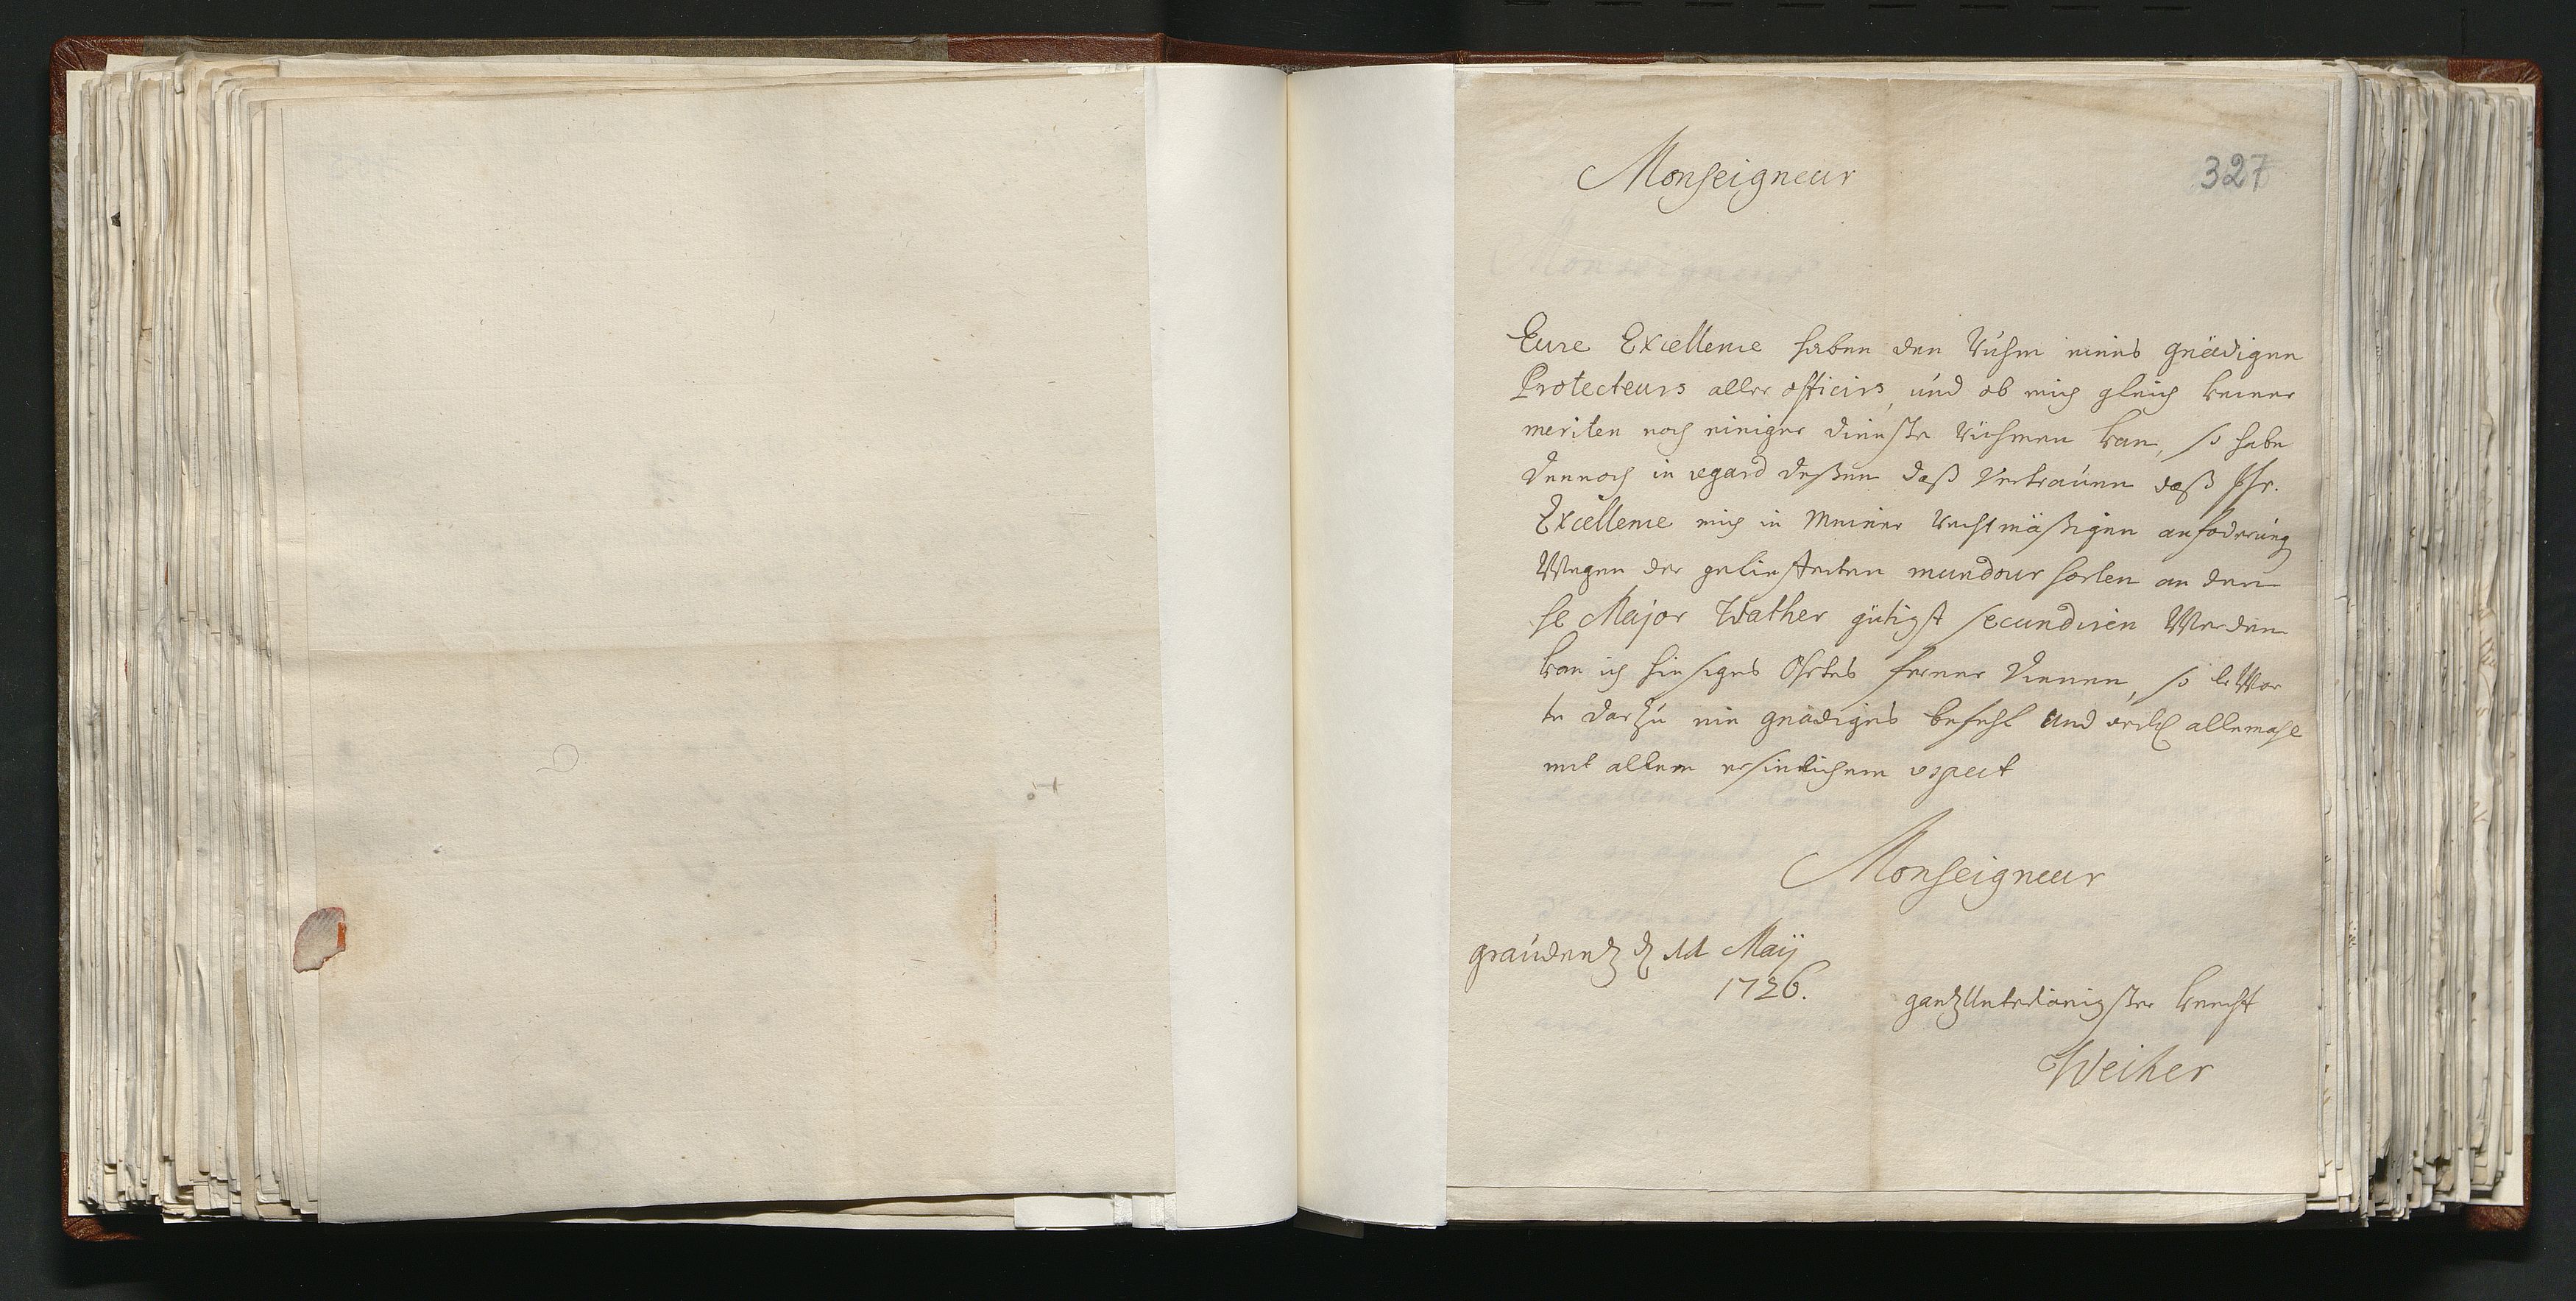 327
Monseigneur
Eure Excellence haben den Ruhm eines gnädigen
Protecteurs aller officirs, und ob mich gleich keiner
meriten noch einiger dienste rühmen kan, so habe
dennoch in regard deßen daß Vertrauen daß Ihr.
Excellence mich in meiner rechtmäßigen anfoderung
Wegen der gelieferten mundour sorten an den
H Major Wather gütigst secundiren Werden
kan ich hiesiges Ohrtes ferner dienen, so erWar
te darzu ein gnädiges befehl und allemahl
mit allem ersinlichem respect
Monseigneur
graudentz d 11 Maij
1726.
gantzUnterthänigster knecht
Weiher